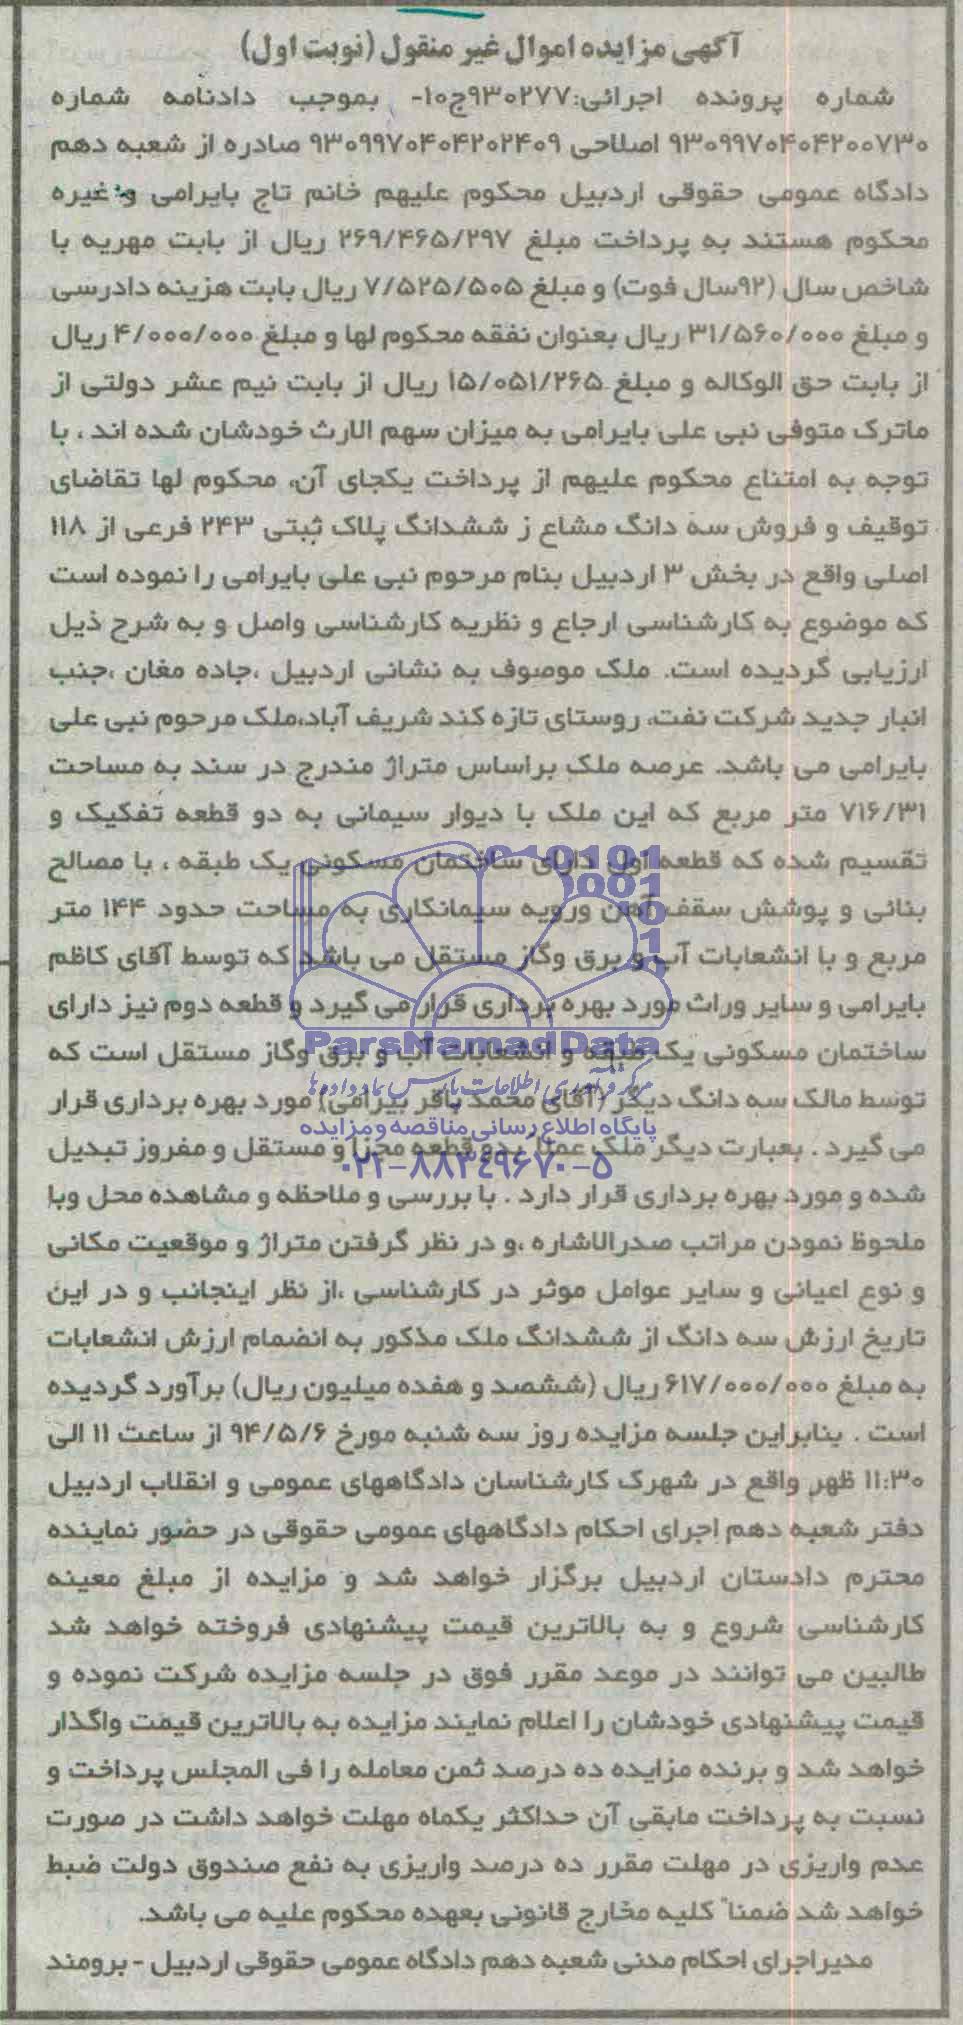 آگهی مزایده اموال غیر منقول (نوبت اول)
شماره پرونده اجرائی:۹۳۰۲۷۷ج۱۰- بموجب دادنامه شماره
۹۳۰۹۹۷۰۴۰۴۲۰۰۷۳۰ اصلاحی ۹۳۰۹۹۷۰۴۰۴۲۰۲۴۰۹ صادره از شعبه دهم
دادگاه عمومی حقوقی اردبیل محکوم علیهم خانم تاج بایرامی و غیره
محکوم هستند به پرداخت مبلغ ۲۶۹/۴۶۵/۲۹۷ ریال از بابت مهریه با
شاخص سال (۹۲سال فوت) و مبلغ ۷/۵۲۵/۵۰۵ ریال بابت هزینه دادرسی
و مبلغ ۳۱/۵۶۰/۰۰۰ ریال بعنوان نفقه محکوم لها و مبلغ ۴/۰۰۰/۰۰۰ ریال
از بابت حق الوکاله و مبلغ ۱۵/۰۵۱/۲۶۵ ریال از بابت نیم عشر دولتی از
ماترک متوفی نبی علی بایرامی به میزان سهم الارث خودشان شده اند ، با
توجه به امتناع محکوم علیهم از پرداخت یکجای آن، محکوم لها تقاضای
توقیف و فروش سه دانگ مشاع ز ششدانگ پلاک ثبتی ۲۴۳ فرعی از ۱۱۸
اصلی واقع در بخش ۳ اردبیل بنام مرحوم نبی علی بایرامی را نموده است
که موضوع به کارشناسی ارجاع و نظریه کارشناسی واصل و به شرح ذیل
ارزیابی گردیده است. ملک موصوف به نشانی اردبیل ،جاده مغان ،جنب
انبار جدید شرکت نفت، روستای تازه کند شریف آباد،ملک مرحوم نبی علی
بایرامی می باشد. عرصه ملک براساس متراژ مندرج در سند به مساحت
۷۱۶/۳۱ متر مربع که این ملک با دیوار سیمانی به دو قطعه تفکیک و
تقسیم شده که قطعه اول دارای ساختمان مسکونی یک طبقه ، با مصالح
بنائی و پوشش سقف آهن ورویه سیمانکاری به مساحت حدود ۱۴۴ متر
مربع و با انشعابات آب و برق وگاز مستقل می باشد که توسط آقای کاظم
بایرامی و سایر وراث مورد بهره برداری قرار می گیرد و قطعه دوم نیز دارای
ParsNamadData
ساختمان مسکونی یک طبقه و انشعابات آب و برق وگاز مستقل است که
مرکز فرآوری اطلاعات پارس نماد داده ها
توسط مالک سه دانگ دیگر (آقای محمد باقر بیرامی) مورد بهره برداری قرار
پایگاه اطلاع رسانی مناقصه و مزایده
می گیرد . بعبارت دیگر ملک عملاً بدو قطعه مجزا و مستقل و مفروز تبدیل
۰۲۱-۸۸۳۴۹۶۷۰-۵
شده و مورد بهره برداری قرار دارد . با بررسی و ملاحظه و مشاهده محل وبا
ملحوظ نمودن مراتب صدرالاشاره ،و در نظر گرفتن متراژ و موقعیت مکانی
و نوع اعیانی و سایر عوامل موثر در کارشناسی ،از نظر اینجانب و در این
تاریخ ارزش سه دانگ از ششدانگ ملک مذکور به انضمام ارزش انشعابات
به مبلغ ۶۱۷/۰۰۰/۰۰۰ ریال (ششصد و هفده میلیون ریال) برآورد گردیده
است . بنابراین جلسه مزایده روز سه شنبه مورخ ۹۴/۵/۶ از ساعت ۱۱ الی
۱۱:۳۰ ظهر واقع در شهرک کارشناسان دادگاههای عمومی و انقلاب اردبیل
دفتر شعبه دهم اجرای احکام دادگاههای عمومی حقوقی در حضور نماینده
محترم دادستان اردبیل برگزار خواهد شد و مزایده از مبلغ معینه
کارشناسی شروع و به بالاترین قیمت پیشنهادی فروخته خواهد شد
طالبین می توانند در موعد مقرر فوق در جلسه مزایده شرکت نموده و
قیمت پیشنهادی خودشان را اعلام نمایند مزایده به بالاترین قیمت واگذار
خواهد شد و برنده مزایده ده درصد ثمن معامله را فی المجلس پرداخت و
نسبت به پرداخت مابقی آن حداکثر یکماه مهلت خواهد داشت در صورت
عدم واریزی در مهلت مقرر ده درصد واریزی به نفع صندوق دولت ضبط
خواهد شد ضمنا" کلیه مخارج قانونی بعهده محکوم علیه می باشد.
مدیراجرای احکام مدنی شعبه دهم دادگاه عمومی حقوقی اردبیل - برومند